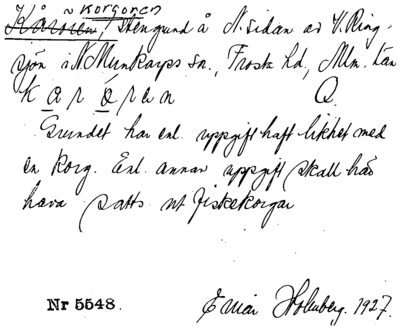 ~ Korgoren
Kåroren, stengrund å N. sidan av V. Ring-
sjön i N. Munkarps sn., Frosta hd, Mlm. län
Grundet har enl. uppgift haft likhet med
en korg. Enl. annan uppgift skall här
hava satts ut fiskekorgar
Nr 5548. Einar Holmberg. 1927.